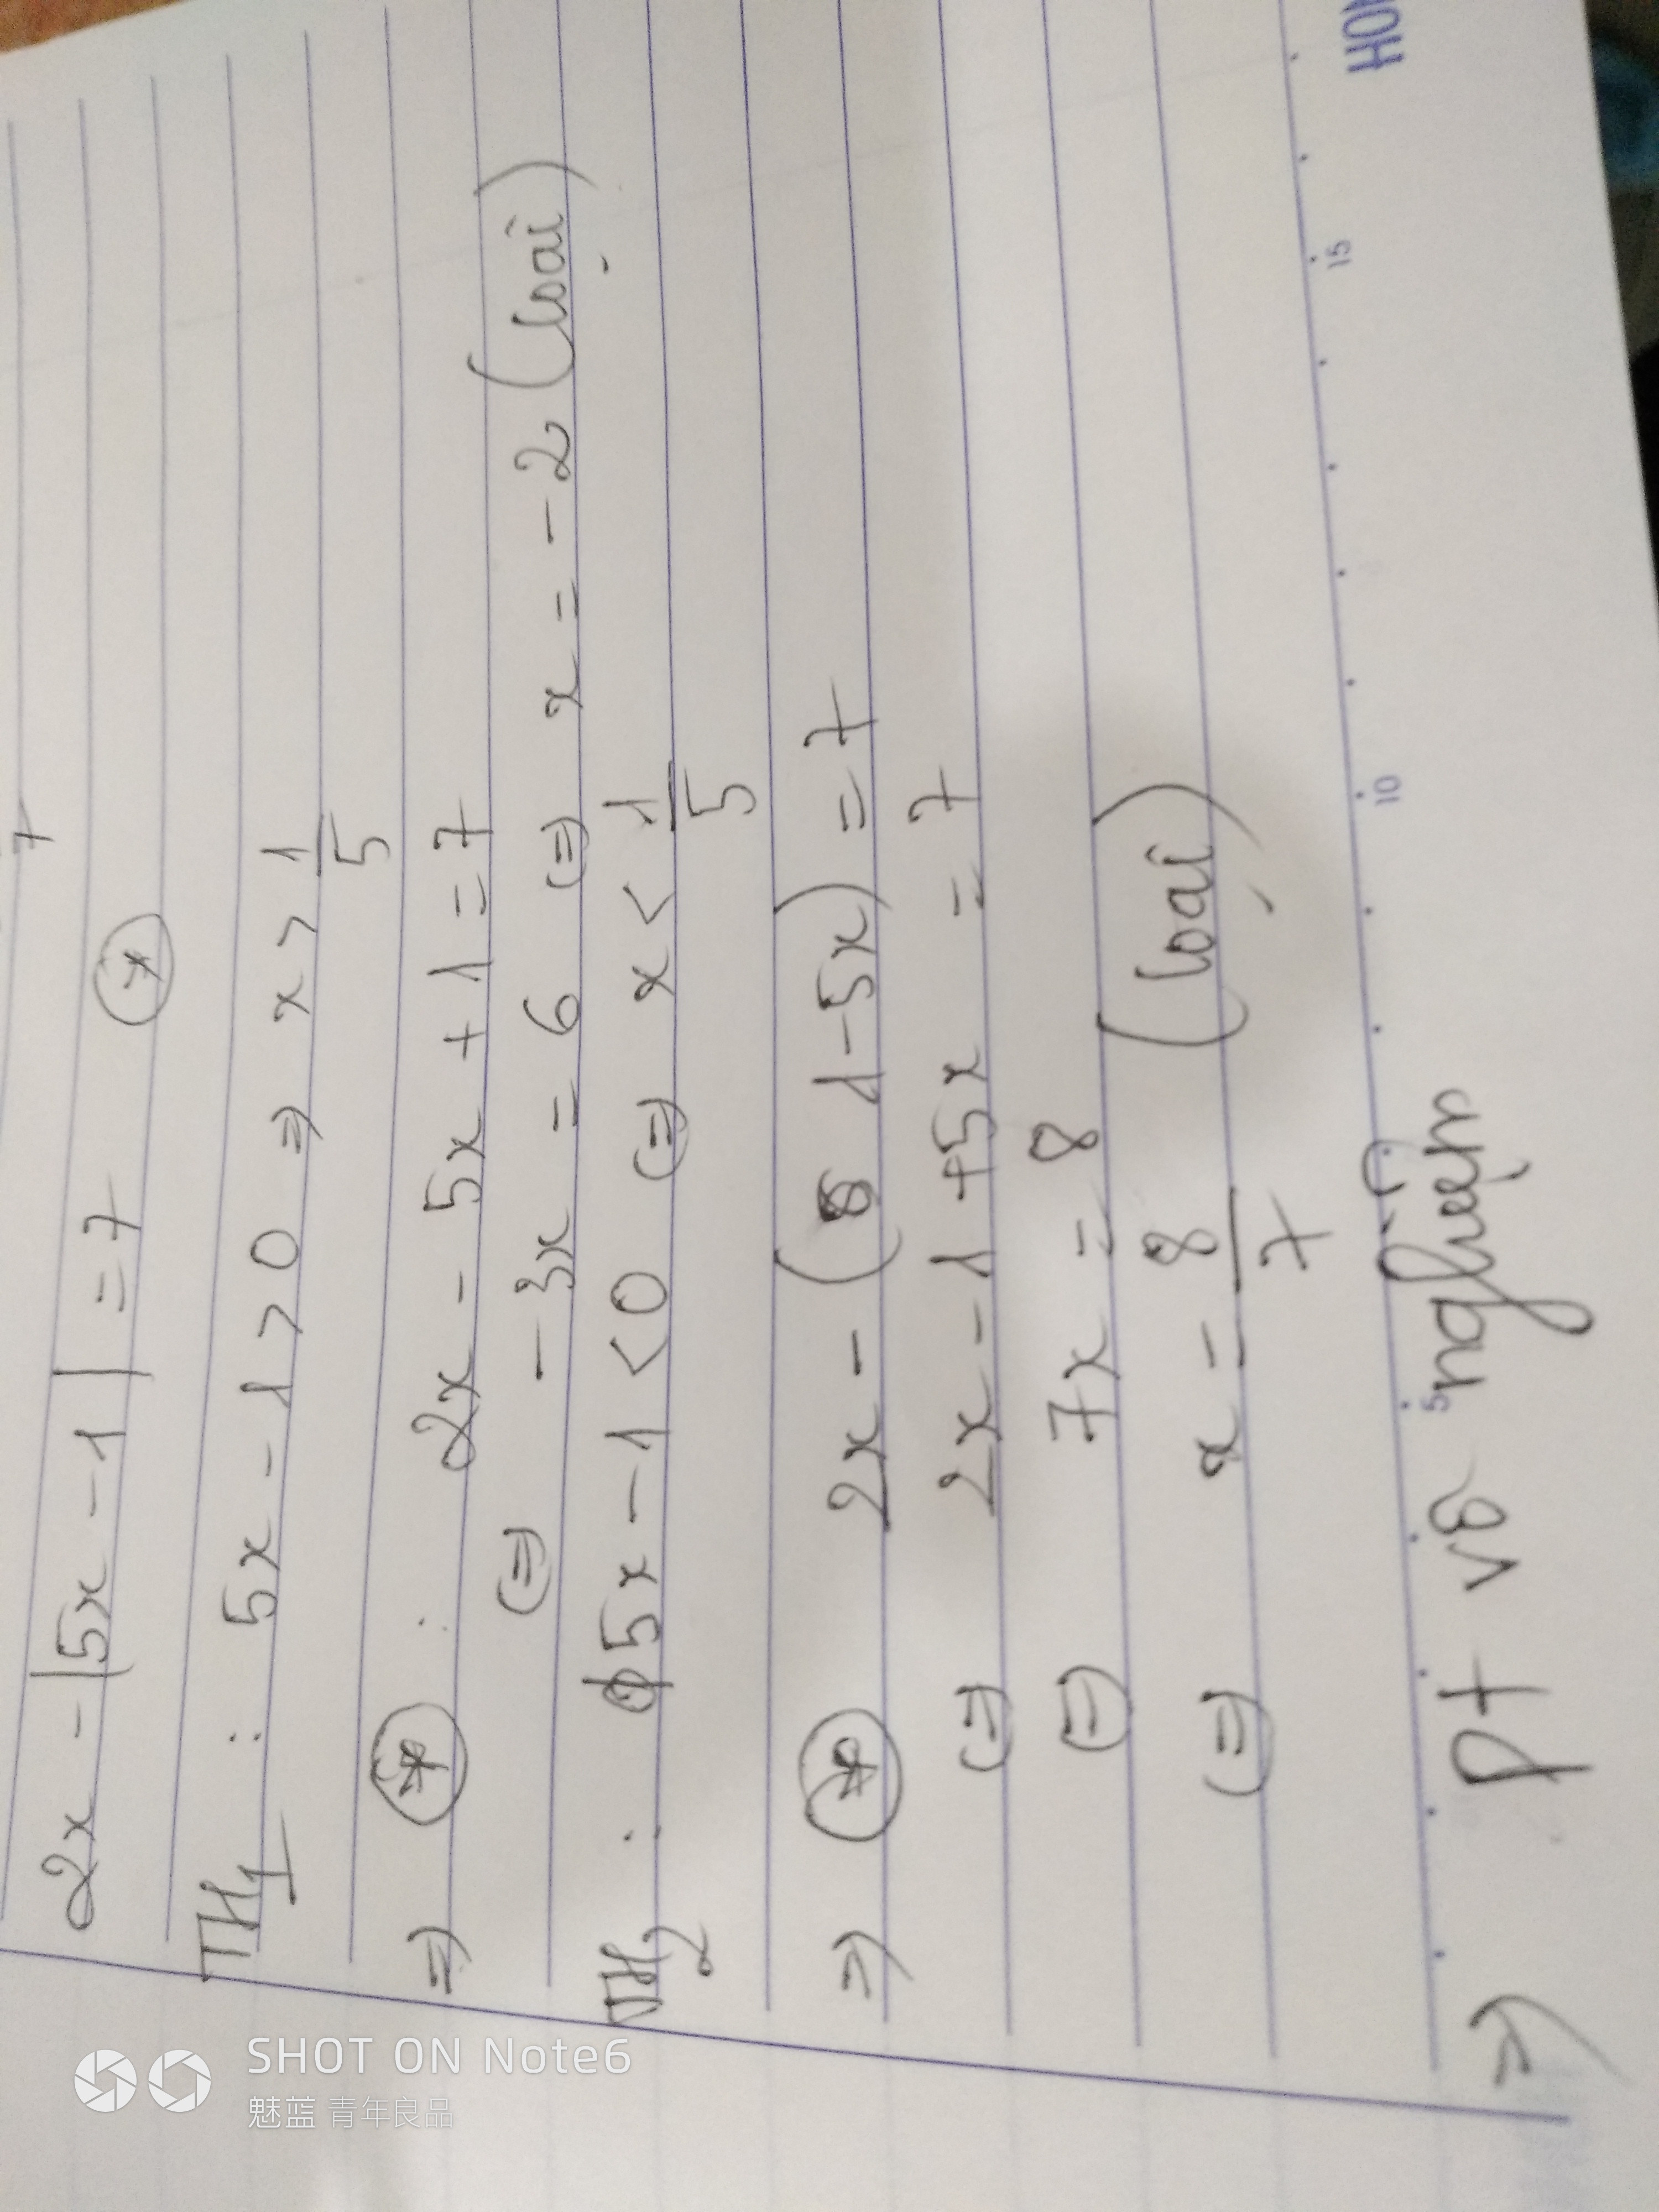 7
2x - |5x - 1| = 7 (*)
TH1 : 5x - 1 > 0 => x > 1/5
=> (*) : 2x - 5x + 1 = 7
(=) - 3x = 6 (=) x = - 2 (loại)
TH2 : 5x - 1 < 0 (=) x < 1/5
=> (*) 2x - (1 - 5x) = 7
(=) 2x - 1 + 5x = 7
(=) 7x = 8
(=) x = 8/7 (loại)
=> pt vô nghiệm
5 10 15
HON
SHOT ON Note6
魅蓝 青年良品